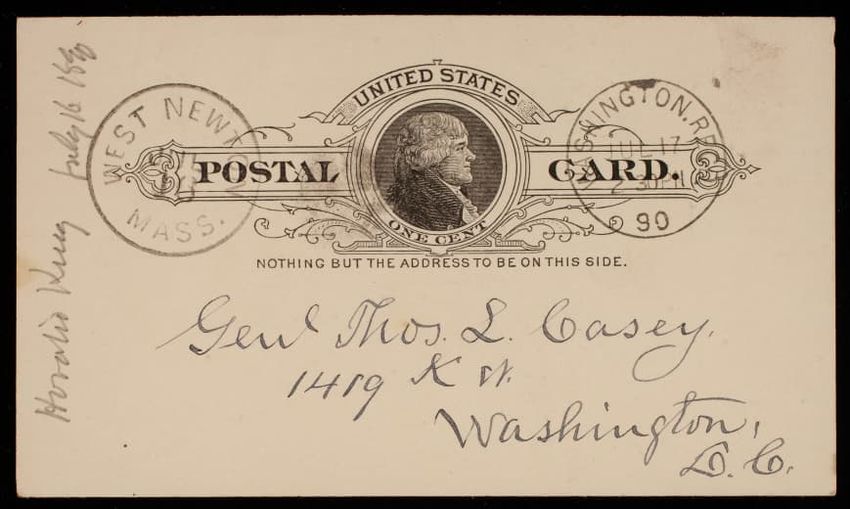 UNITED STATES
POSTAL CARD.
ONE CENT
NOTHING BUT THE ADDRESS TO BE ON THIS SIDE.
WEST NEWTON
MASS.
WASHINGTON, RE
JUL 17
2 30PM
90
Genl Thos. L. Casey,
1419 K St.
Washington,
D. C.
Horatio King July 16 1890